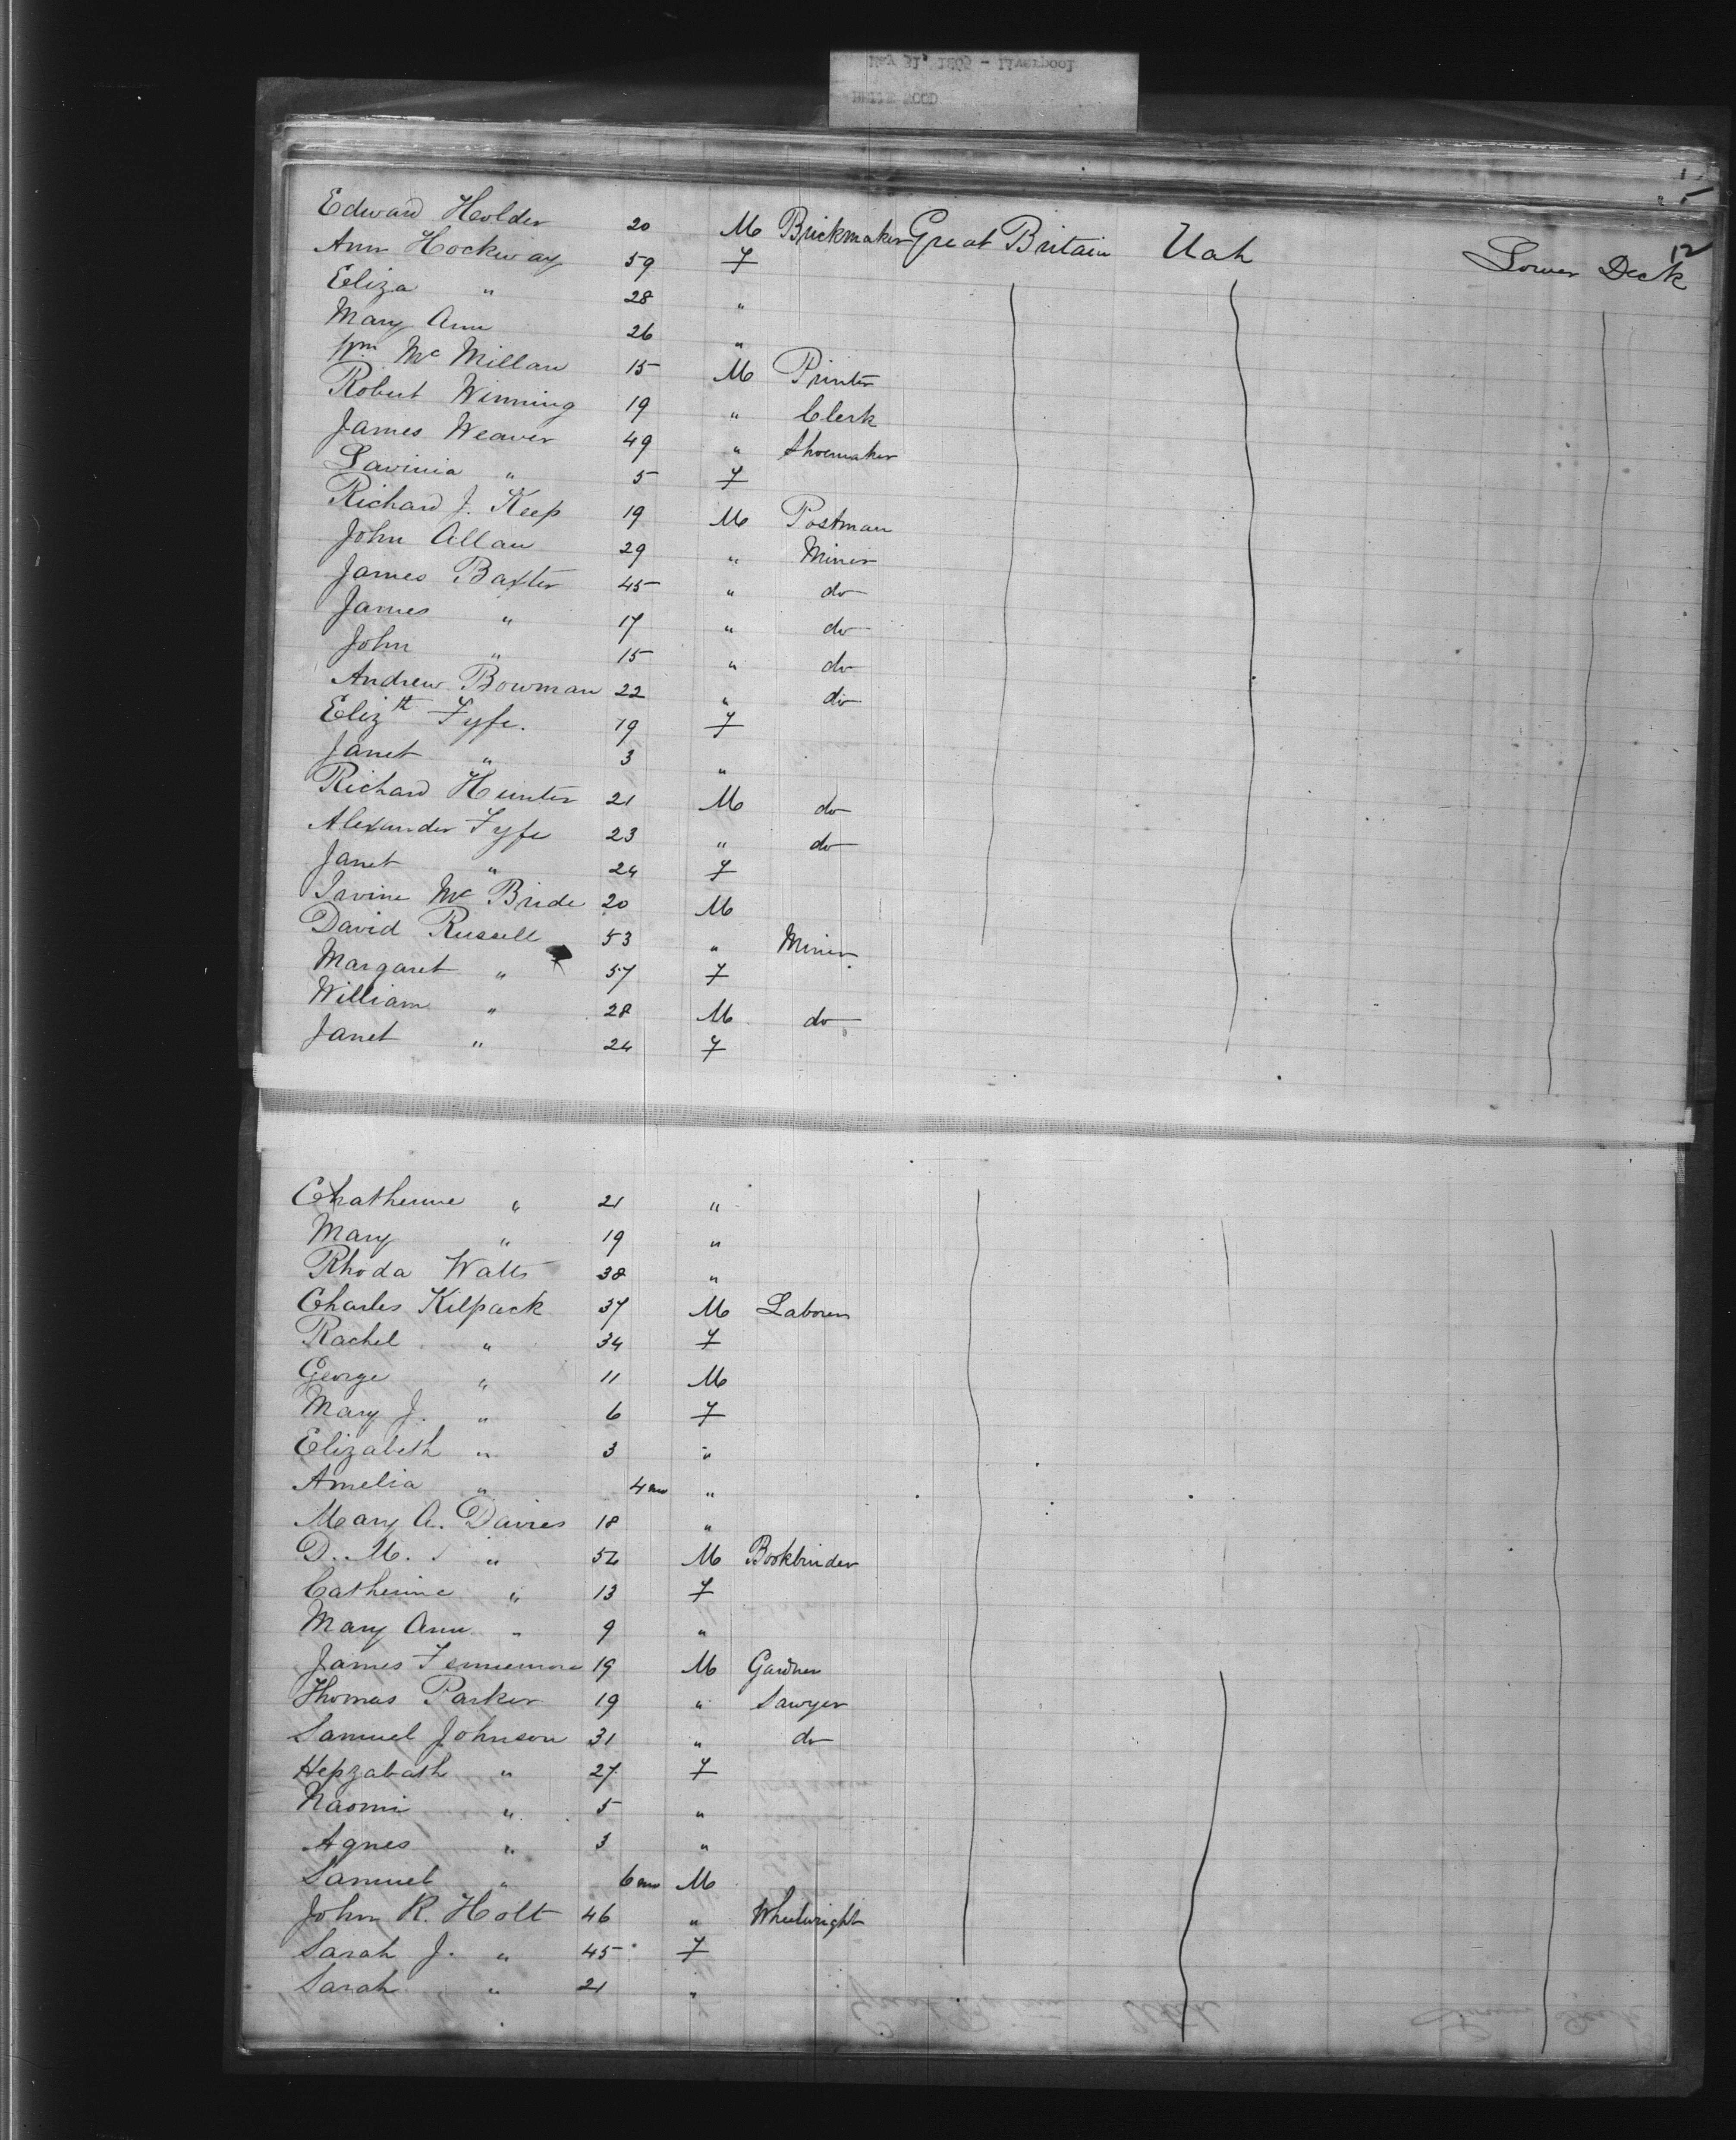 May 31, 1865 - Liverpool
BELLE WOOD
12
Edward Holder 20 M Brickmaker Great Britain Uah Lower Deck
Ann Hockway 59 F
Eliza " 28 "
Mary Ann 26 "
Wm McMillan 15 M Printer
Robert Winning 19 " Clerk
James Weaver 49 " Shoemaker
Lavinia " 5 F
Richard J. Keep 19 M Postman
John Allan 29 " Miner
James Baxter 45 " do
James " 17 " do
John " 15 " do
Andrew Bowman 22 " do
Elizth Fyfe. 19 F
Janet " 3 "
Richard Hunter 21 M do
Alexander Fyfe 23 " do
Janet " 24 F
Irvine McBride 20 M
David Russell 53 " Miner
Margaret " 57 F
William " 28 M do
Janet " 24 F
Chatherine " 21 "
Mary " 19 "
Rhoda Watts 38 "
Charles Kilpack 37 M Laborer
Rachel " 34 F
George " 11 M
Mary J. " 6 F
Elizabeth " 3 "
Amelia " 4 mo "
Mary A. Davies 18 "
D. M. " 52 M Bookbinder
Catherine " 13 F
Mary Ann " 9 "
James Fennemore 19 M Gardner
Thomas Parker 19 " Sawyer
Samuel Johnson 31 " do
Hepzabath " 27 F
Naomi " 5 "
Agnes " 3 "
Samuel " 6 mo M
John R. Holt 46 " Wheelwright
Sarah J. " 45 F
Sarah " 21 "